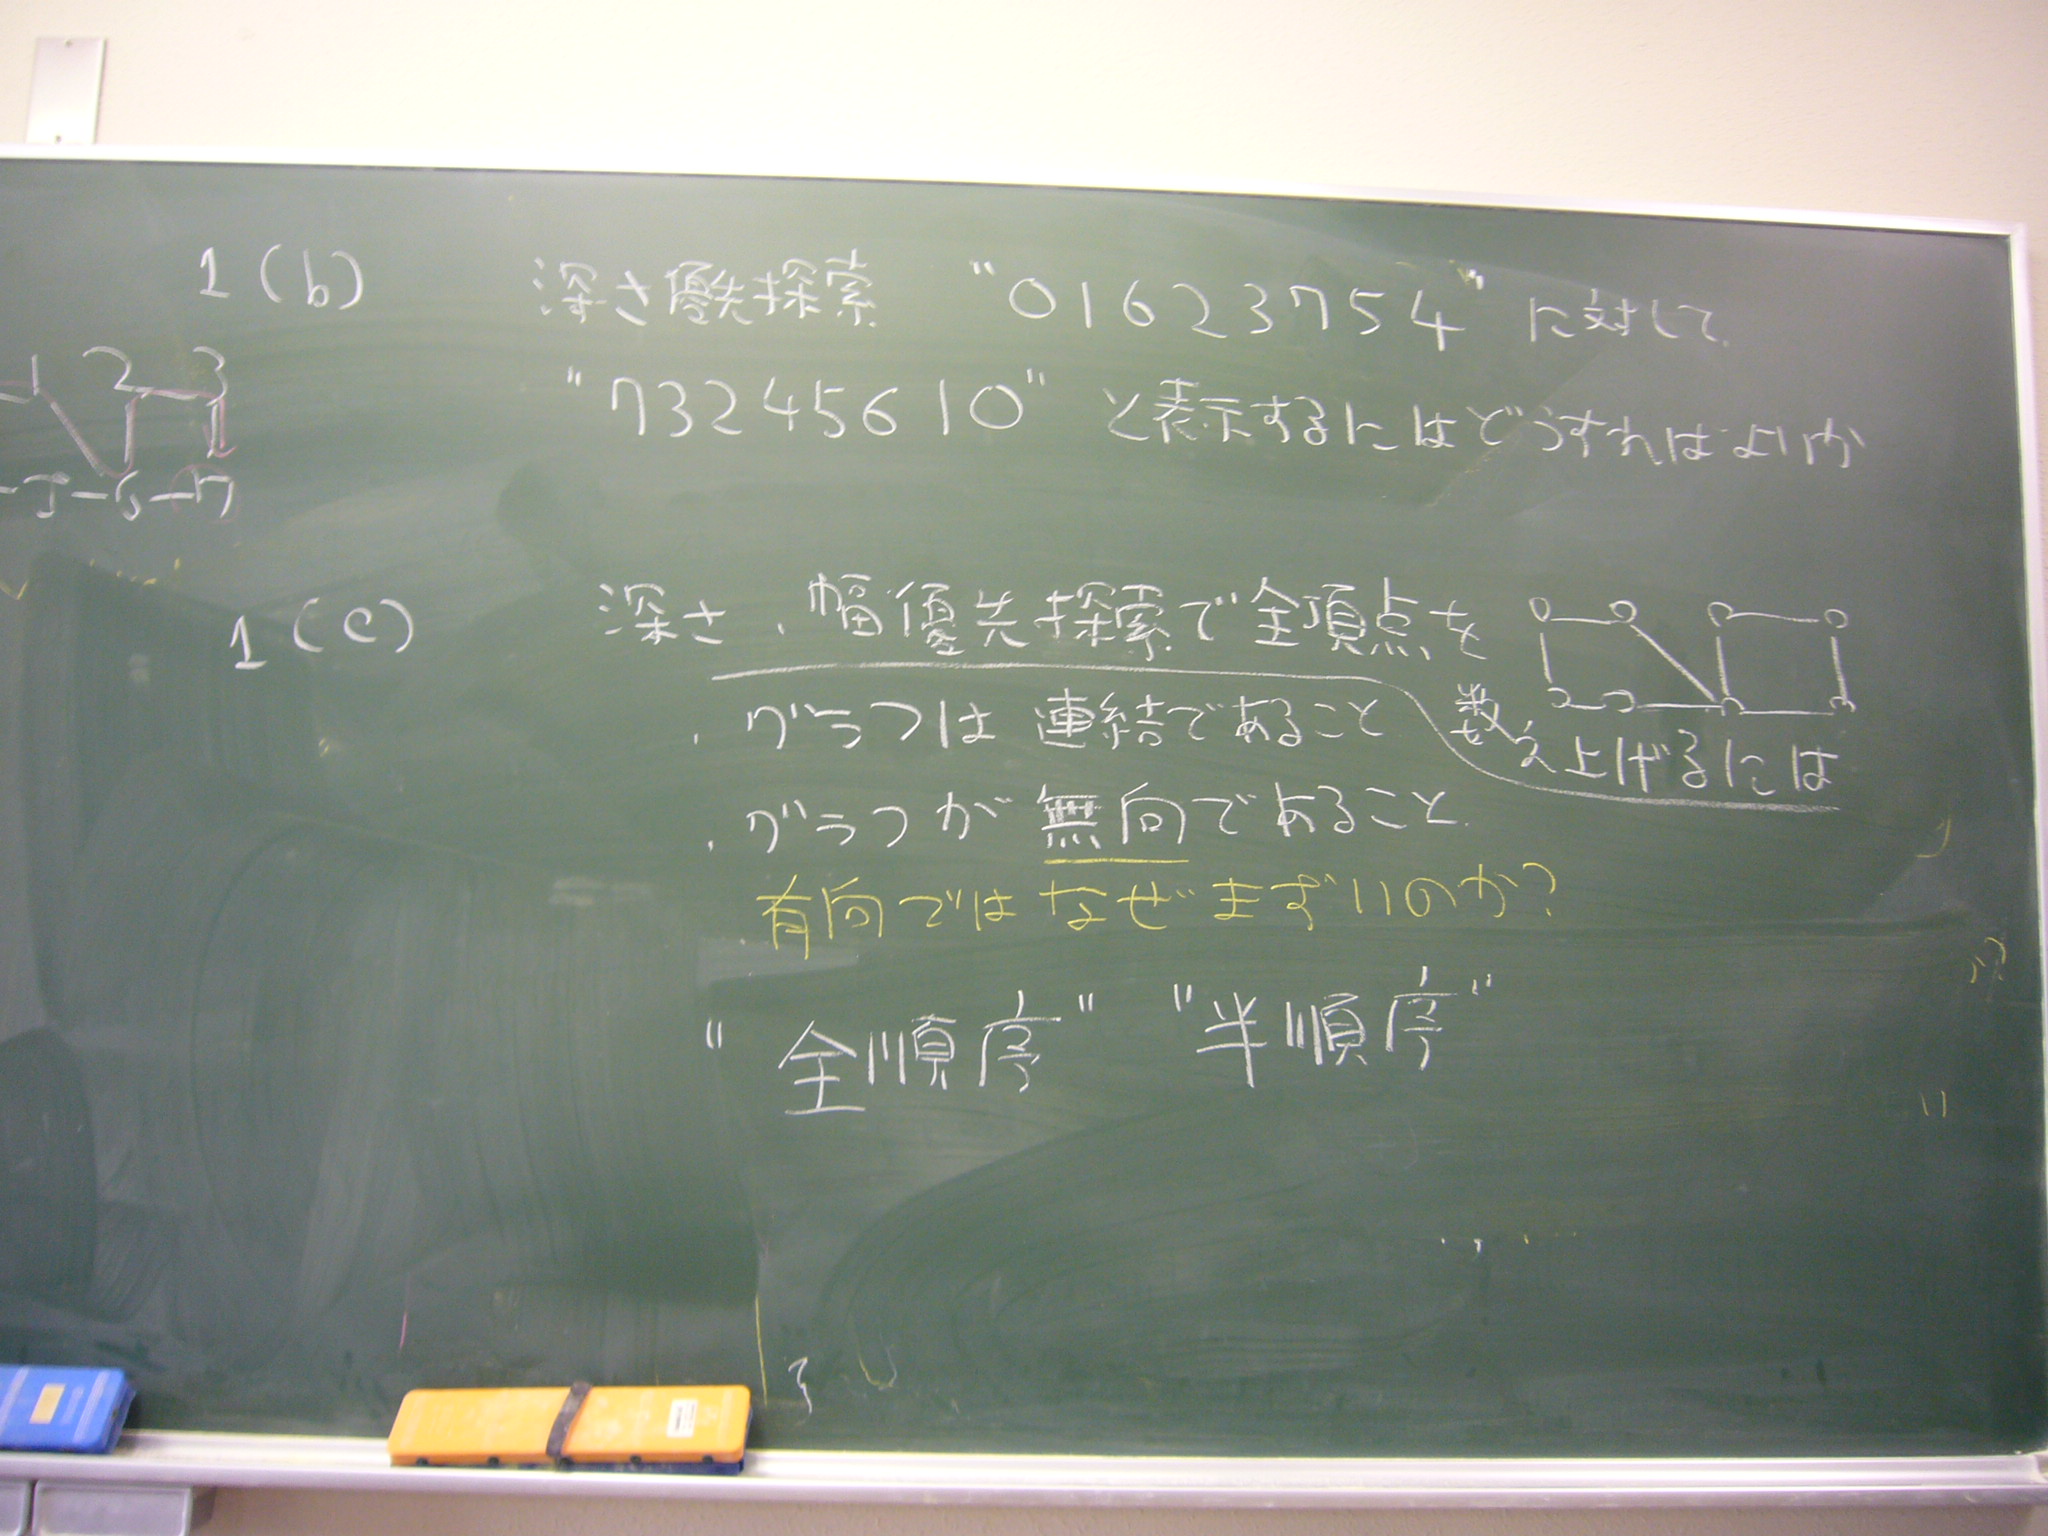 1(b) 深さ優先探索 "01623754" に対して
"73245610" と表示するにはどうすればよいか
1 2 3
5 6 7
1(c) 深さ、幅優先探索で全頂点を
数え上げるには
・グラフは連結であること
・グラフが無向であること
有向ではなぜまずいのか?
"全順序" "半順序"